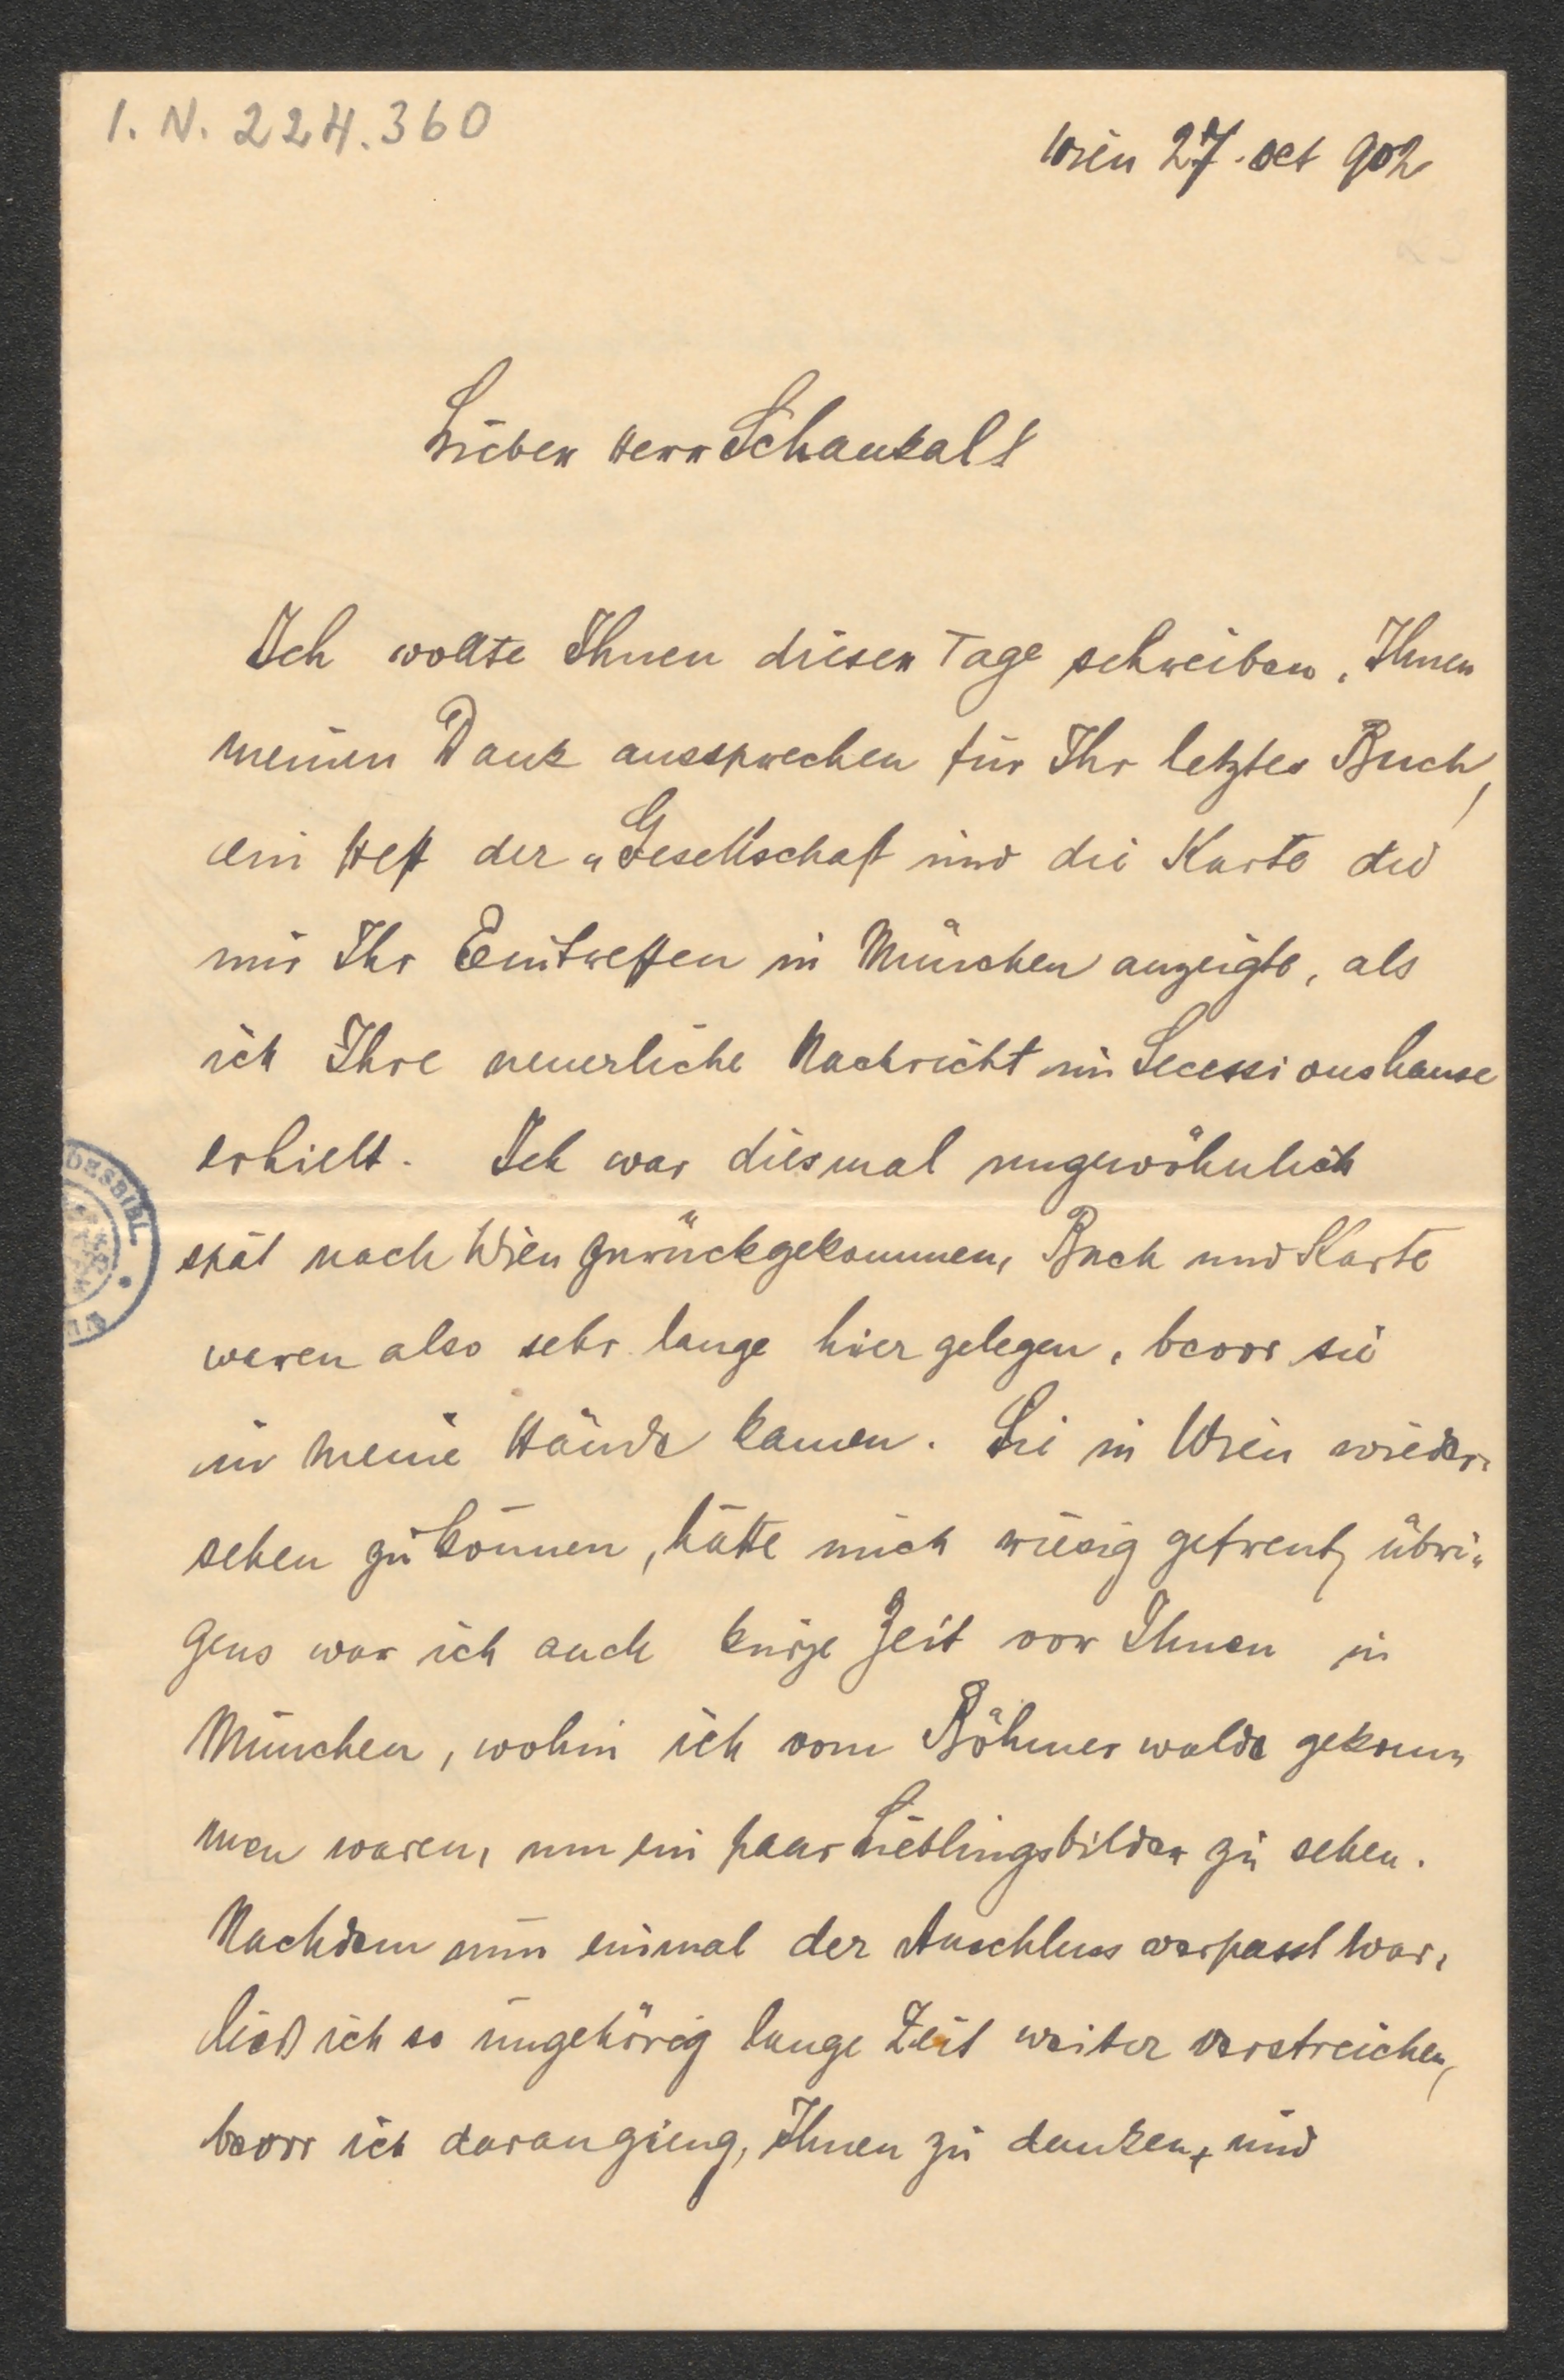 I. N. 224.360
Wien 27. Oct 902
Lieber Herr Schaukal!
Ich wollte Ihnen dieser Tage schreiben, Ihnen
meinen Dank aussprechen für Ihr letztes Buch,
ein Heft der „Gesellschaft und die Karte die
mir Ihr Eintreffen in München anzeigte, als
ich Ihre neuerliche Nachricht im Secessionshause
erhielt. Ich war diesmal ungewöhnlich
spät nach Wien zurückgekommen, Buch und Karte
waren also sehr lange hier gelegen, bevor sie
in meine Hände kamen. Sie in Wien wieder-
sehen zu können, hätte mich riesig gefreut, übri-
gens war ich auch kurze Zeit vor Ihnen in
München, wohin ich vom Böhmerwalde gekom-
men waren, um ein paar Lieblingsbilder zu sehen.
Nachdem nun einmal der Anschluss verpasst war,
ließ ich so ungehörig lange Zeit weiter verstreichen,
bevor ich darangieng, Ihnen zu danken, und
DESBIBL.